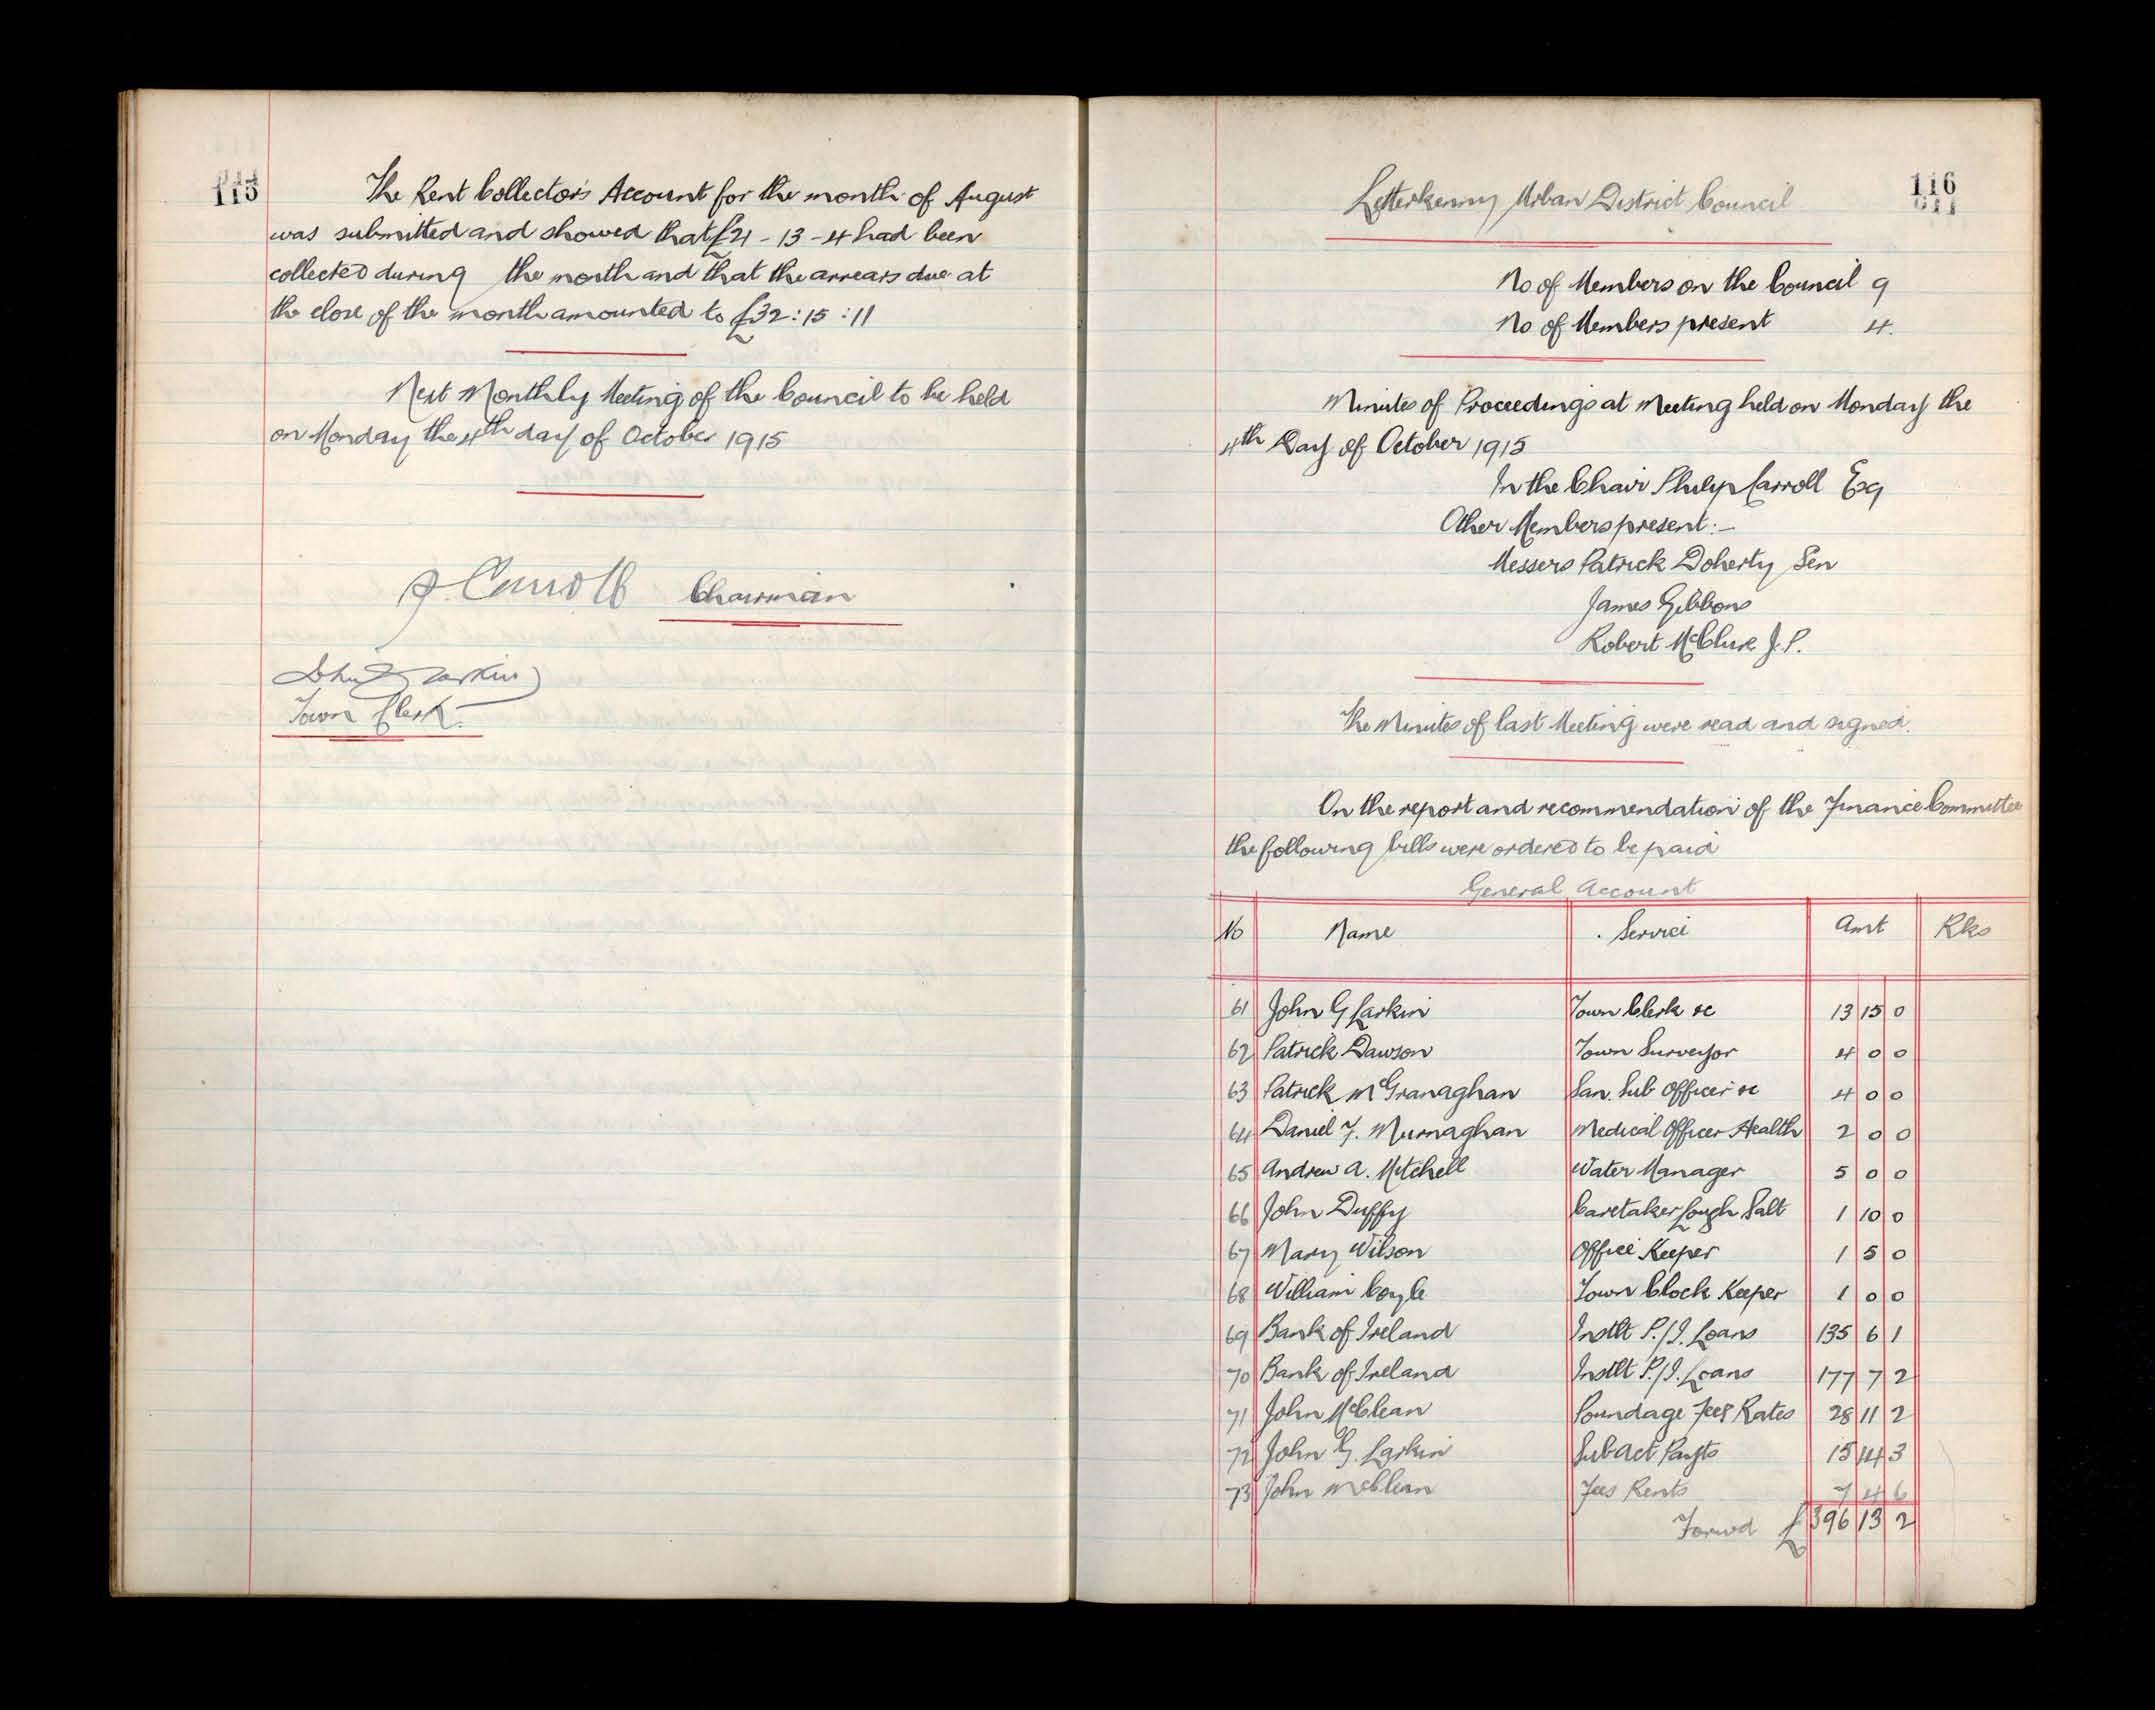 115
The Rent Collector's Account for the month of August
was submitted and showed that £21-13-4 had been
collected during the month and that the arrears due at
the close of the month amounted to £32:15:11
Next Monthly Meeting of the Council to be held
on Monday the 4th day of October 1915
P. Carroll Chairman
John G Larkin
Town Clerk.
116
Letterkenny Urban District Council
No of Members on the Council 9
No of Members present 4.
Minutes of Proceedings at Meeting held on Monday the
4th Day of October 1915
In the Chair Philip Carroll Esq
Other Members present:-
Messers Patrick Doherty Sen
James Gibbons
Robert McClure J.P.
The Minutes of last Meeting were read and signed.
On the report and recommendation of the Finance Committee
the following bills were ordered to be paid
General Account
No Name Service Amt Rks
61 John G Larkin Town Clerk &c 13 15 0
62 Patrick Dawson Town Surveyor 4 0 0
63 Patrick McGranaghan San. Sub Officer &c 4 0 0
64 Daniel F. Murnaghan Medical Officer Health 2 0 0
65 Andrew A. Mitchell Water Manager 5 0 0
66 John Duffy Caretaker Lough Salt 1 10 0
67 Mary Wilson Office Keeper 1 5 0
68 William Coyle Town Clock Keeper 1 0 0
69 Bank of Ireland Instlt P./I. Loans 135 6 1
70 Bank of Ireland Instlt P./I. Loans 177 7 2
71 John McClean Poundage Fees Rates 28 11 2
72 John G. Larkin Sub Act Payts 15 14 3
73 John McClean Fees Rents 7 4 6
Forwd £396 13 2